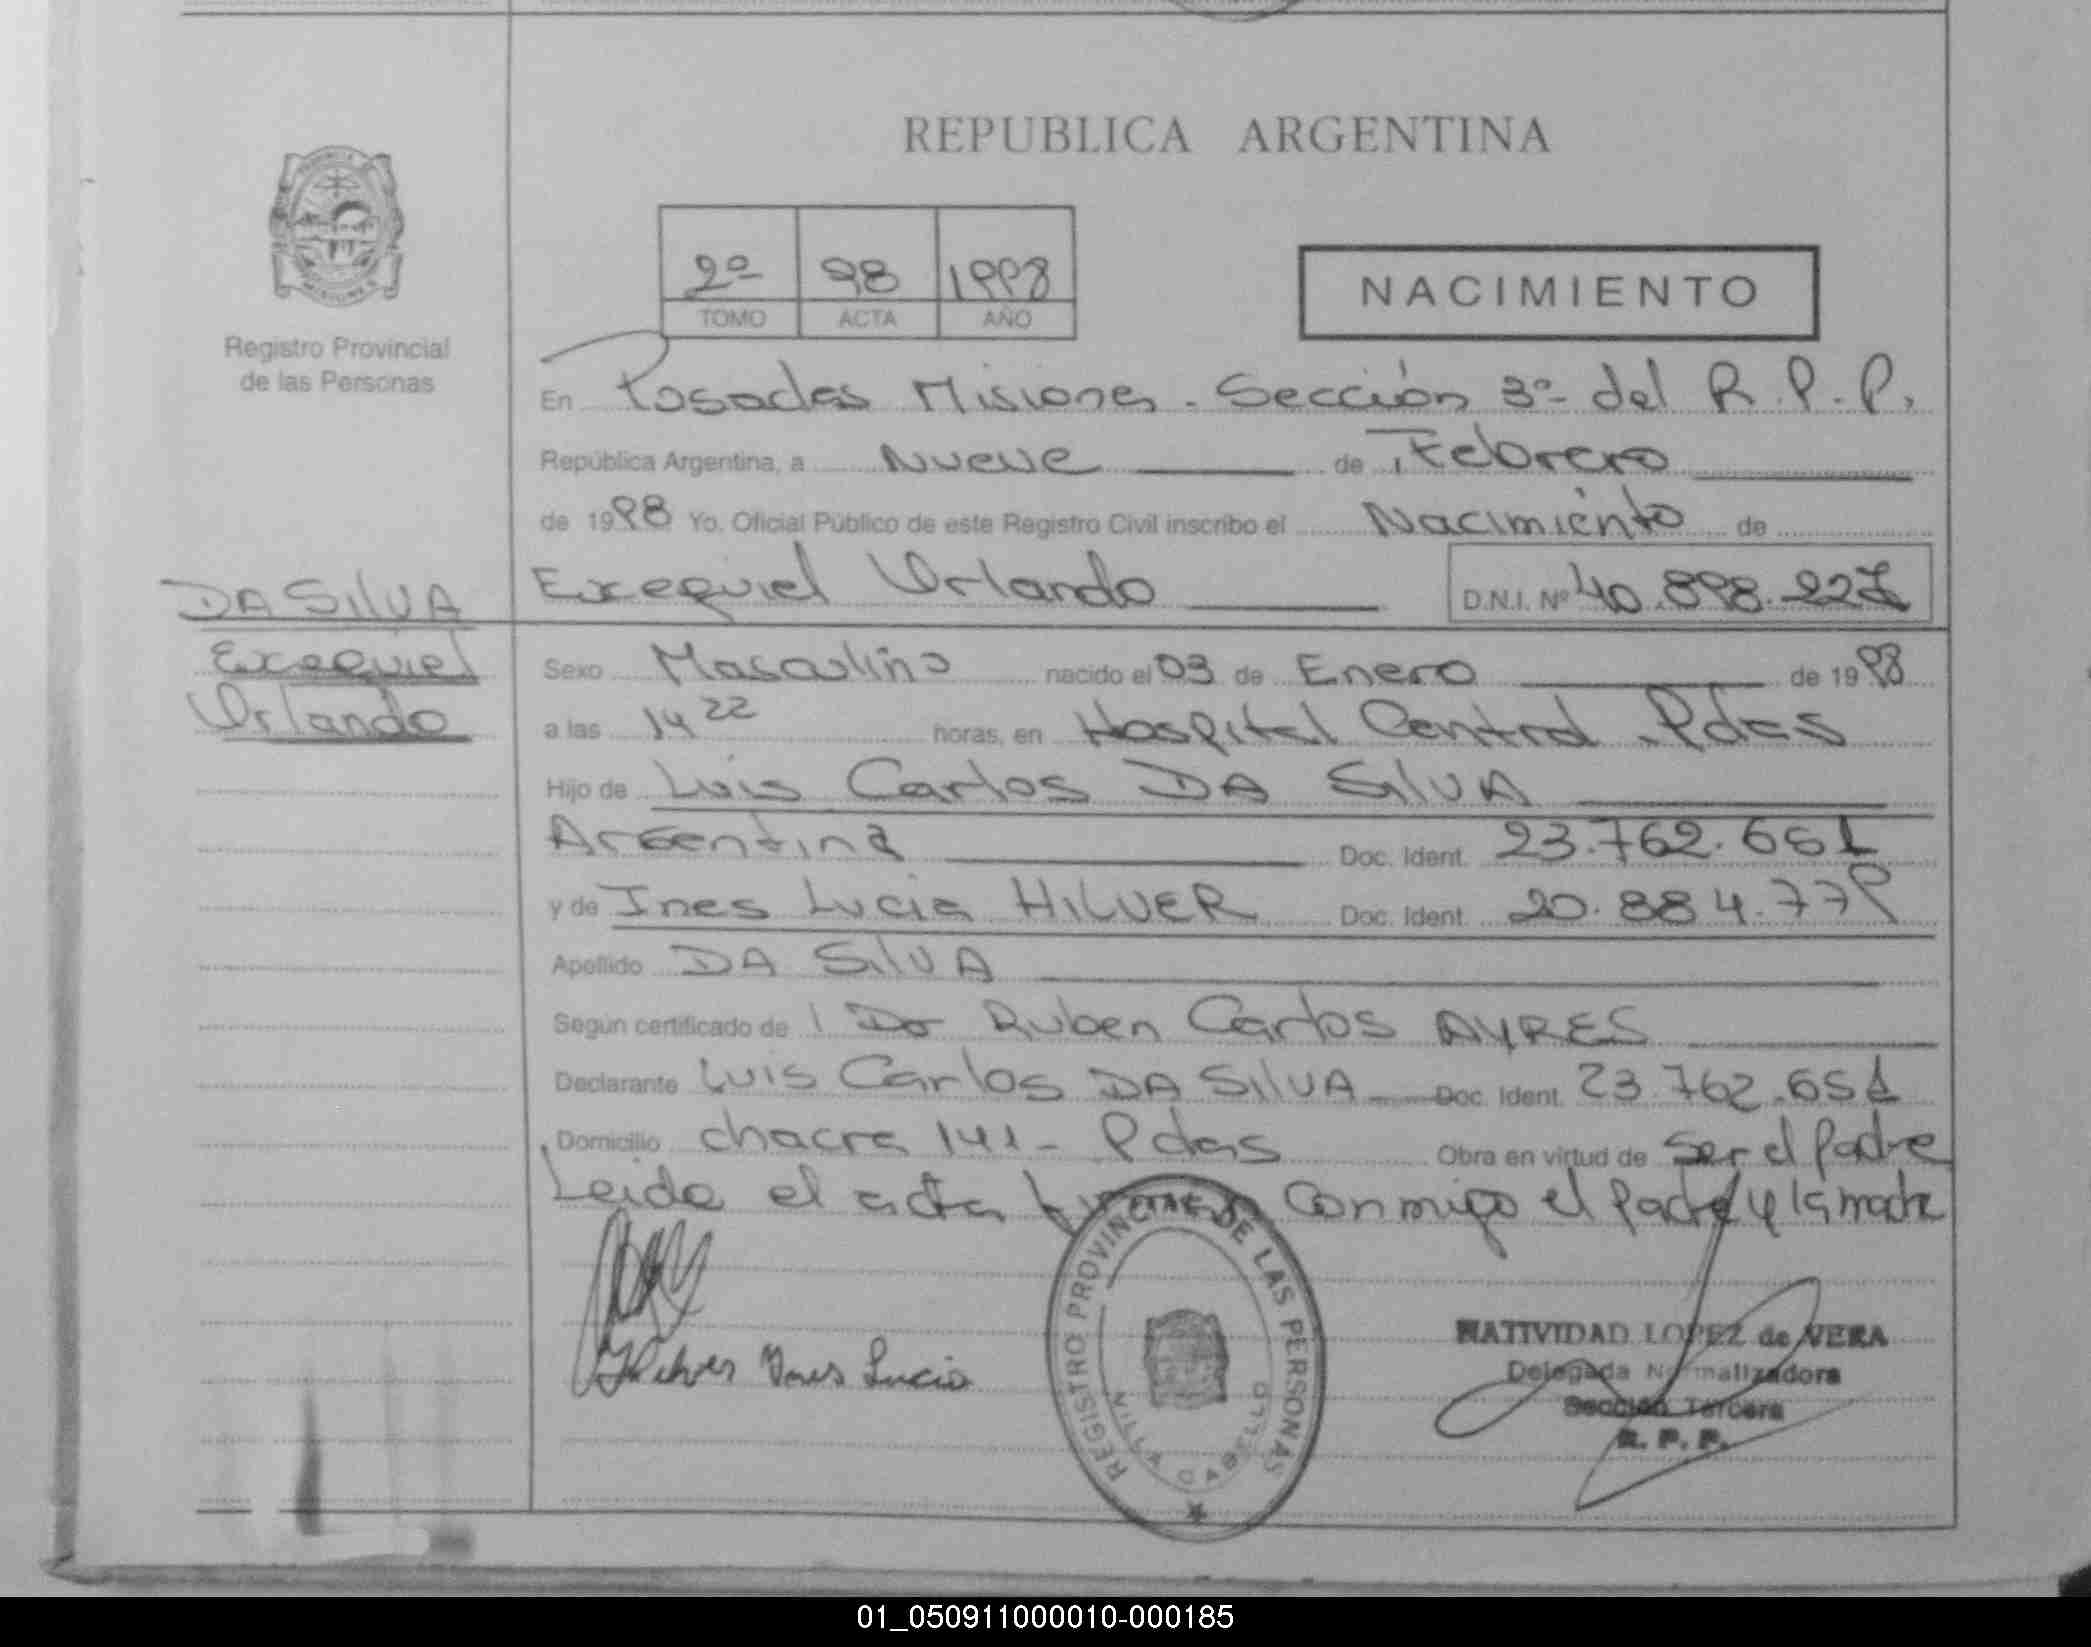 REPUBLICA ARGENTINA
PROVINCIA
MISIONES
Registro Provincial
de las Personas
2º 98 1998
TOMO ACTA AÑO
NACIMIENTO
En Posadas Misiones - Sección 3º del R.P.P.
República Argentina, a Nueve de Febrero
de 1998 Yo. Oficial Público de este Registro Civil inscribo el Nacimiento de
Exequiel Orlando D.N.I. Nº 40.898.227
DA SILVA
Exequiel
Orlando
Sexo Masculino nacido el 03 de Enero de 1998
a las 14 22 horas, en Hospital Central. Pdas
Hijo de Luis Carlos DA SILVA
Argentina Doc. Ident. 23.762.651
y de Ines Lucia HILVER Doc. Ident. 20.884.779
Apellido DA SILVA
Según certificado de Dr Ruben Carlos AYRES
Declarante Luis Carlos DA SILVA Doc. Ident. 23.762.651
Domicilio chacra 141 - Pdas Obra en virtud de ser el padre
Leida el acta conmigo el padre y la madre
Hilver Ines Lucia
REGISTRO PROVINCIAL DE LAS PERSONAS
VILLA CABELLO
NATIVIDAD LOPEZ de VERA
Delegada Normalizadora
Sección Tercera
R. P. P.
01_050911000010-000185